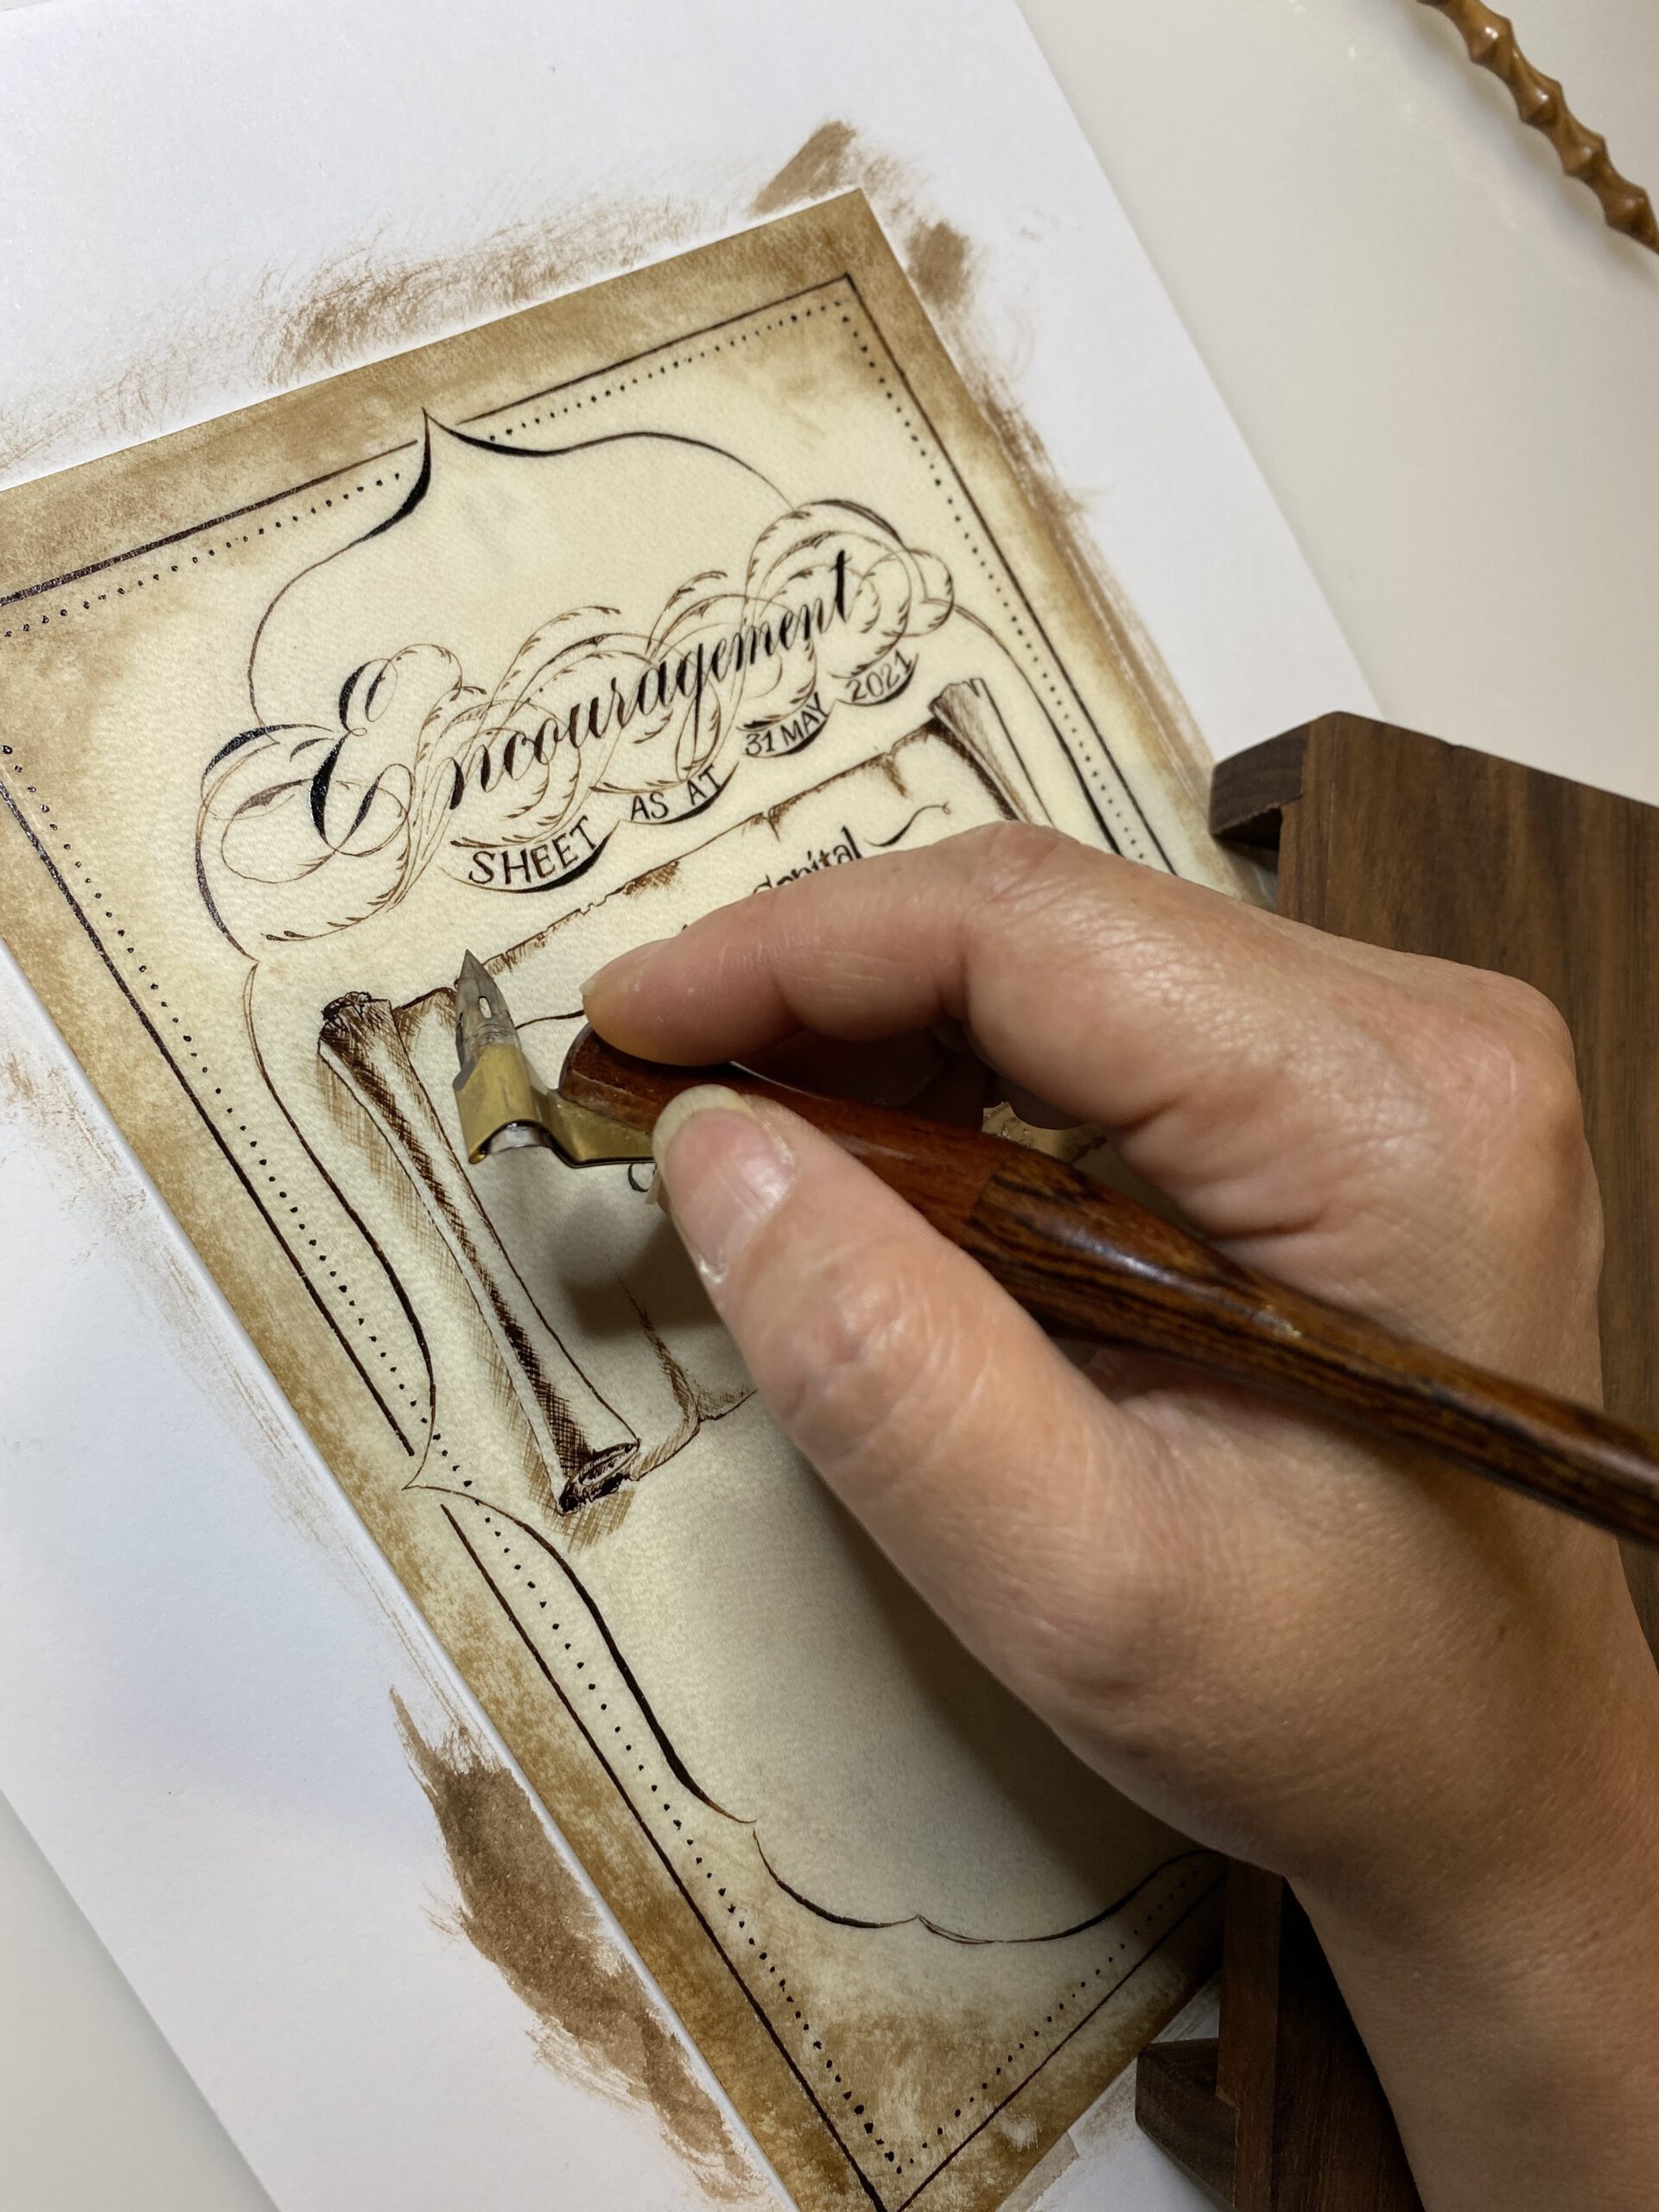 Encouragement
SHEET AS AT 31 MAY 2021
Capital